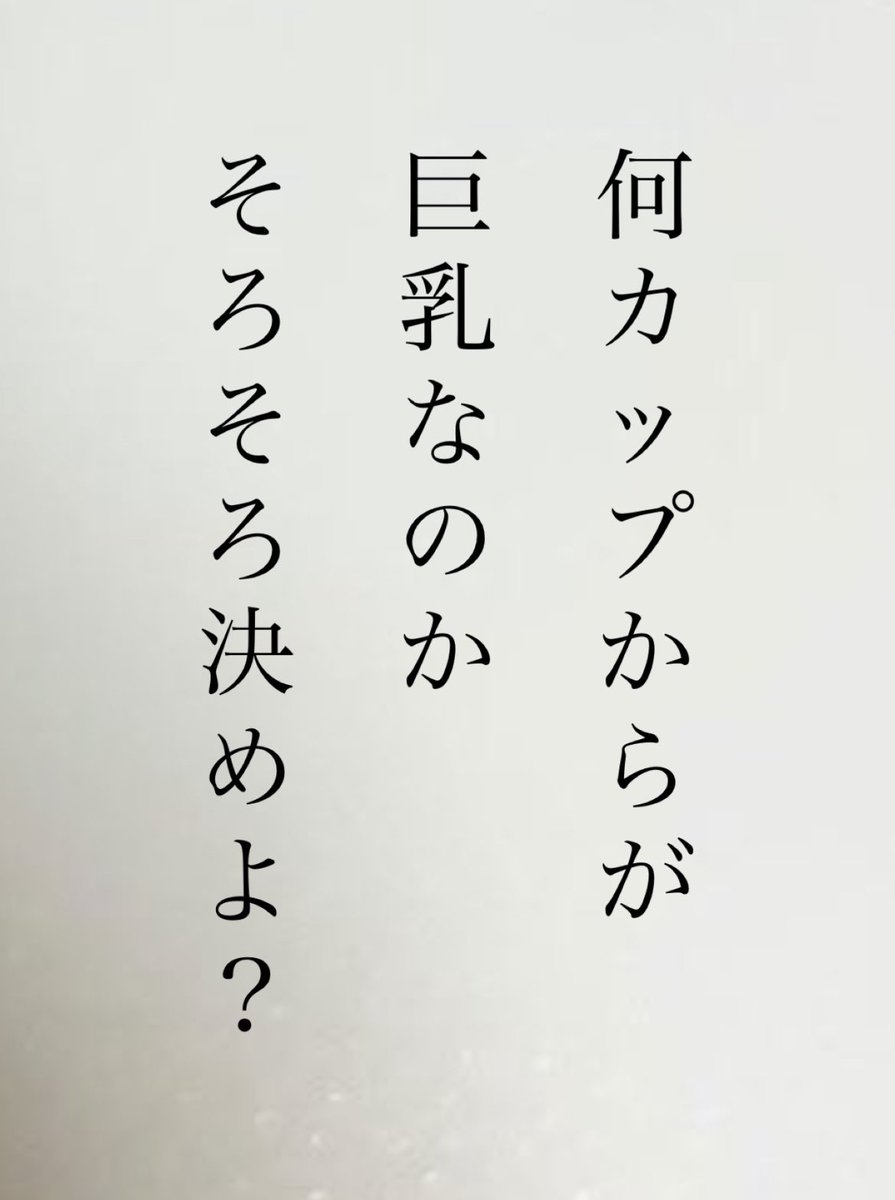 何カップからが
巨乳なのか
そろそろ決めよ？